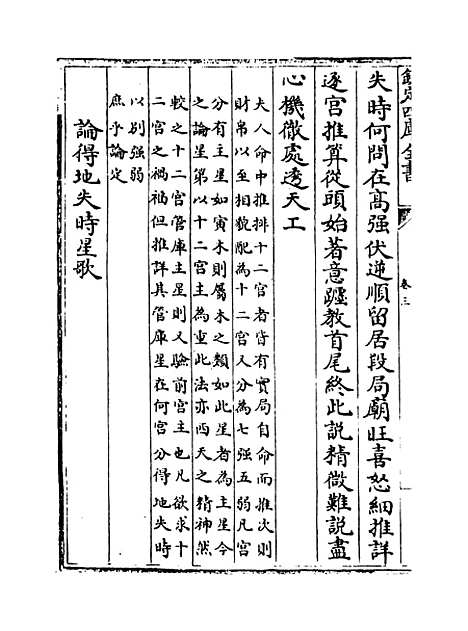 欽定四庫全書
卷三
失時何問在髙强伏逆順留居段局廟旺喜怒細推詳
逐宫推算從頭始著意躔教首尾終此説精微難説盡
心機微處透天工
夫人命中推排十二宫者皆有實局自命而推次則
財帛以至相貌配為十二宫又分為七强五弱凡宫
分有主星如寅木則屬木之類如此星者為主星今
之論星第以十二宫主為重此法亦西天之精神然
較之十二宫管庫主星則又驗前宫主也凡欲求十
二宫之禍福但推詳其管庫星在何宫分得地失時
以别强弱
庶乎論定
論得地失時星歌